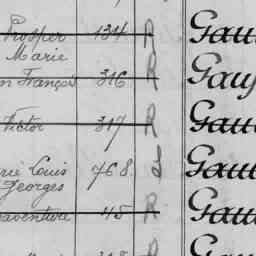 Prosper 134 R Gau
Marie
n François 316 R Gau
Victor 317 R Gau
rie Louis 768 Gau
Georges
aventure 45 R Gau